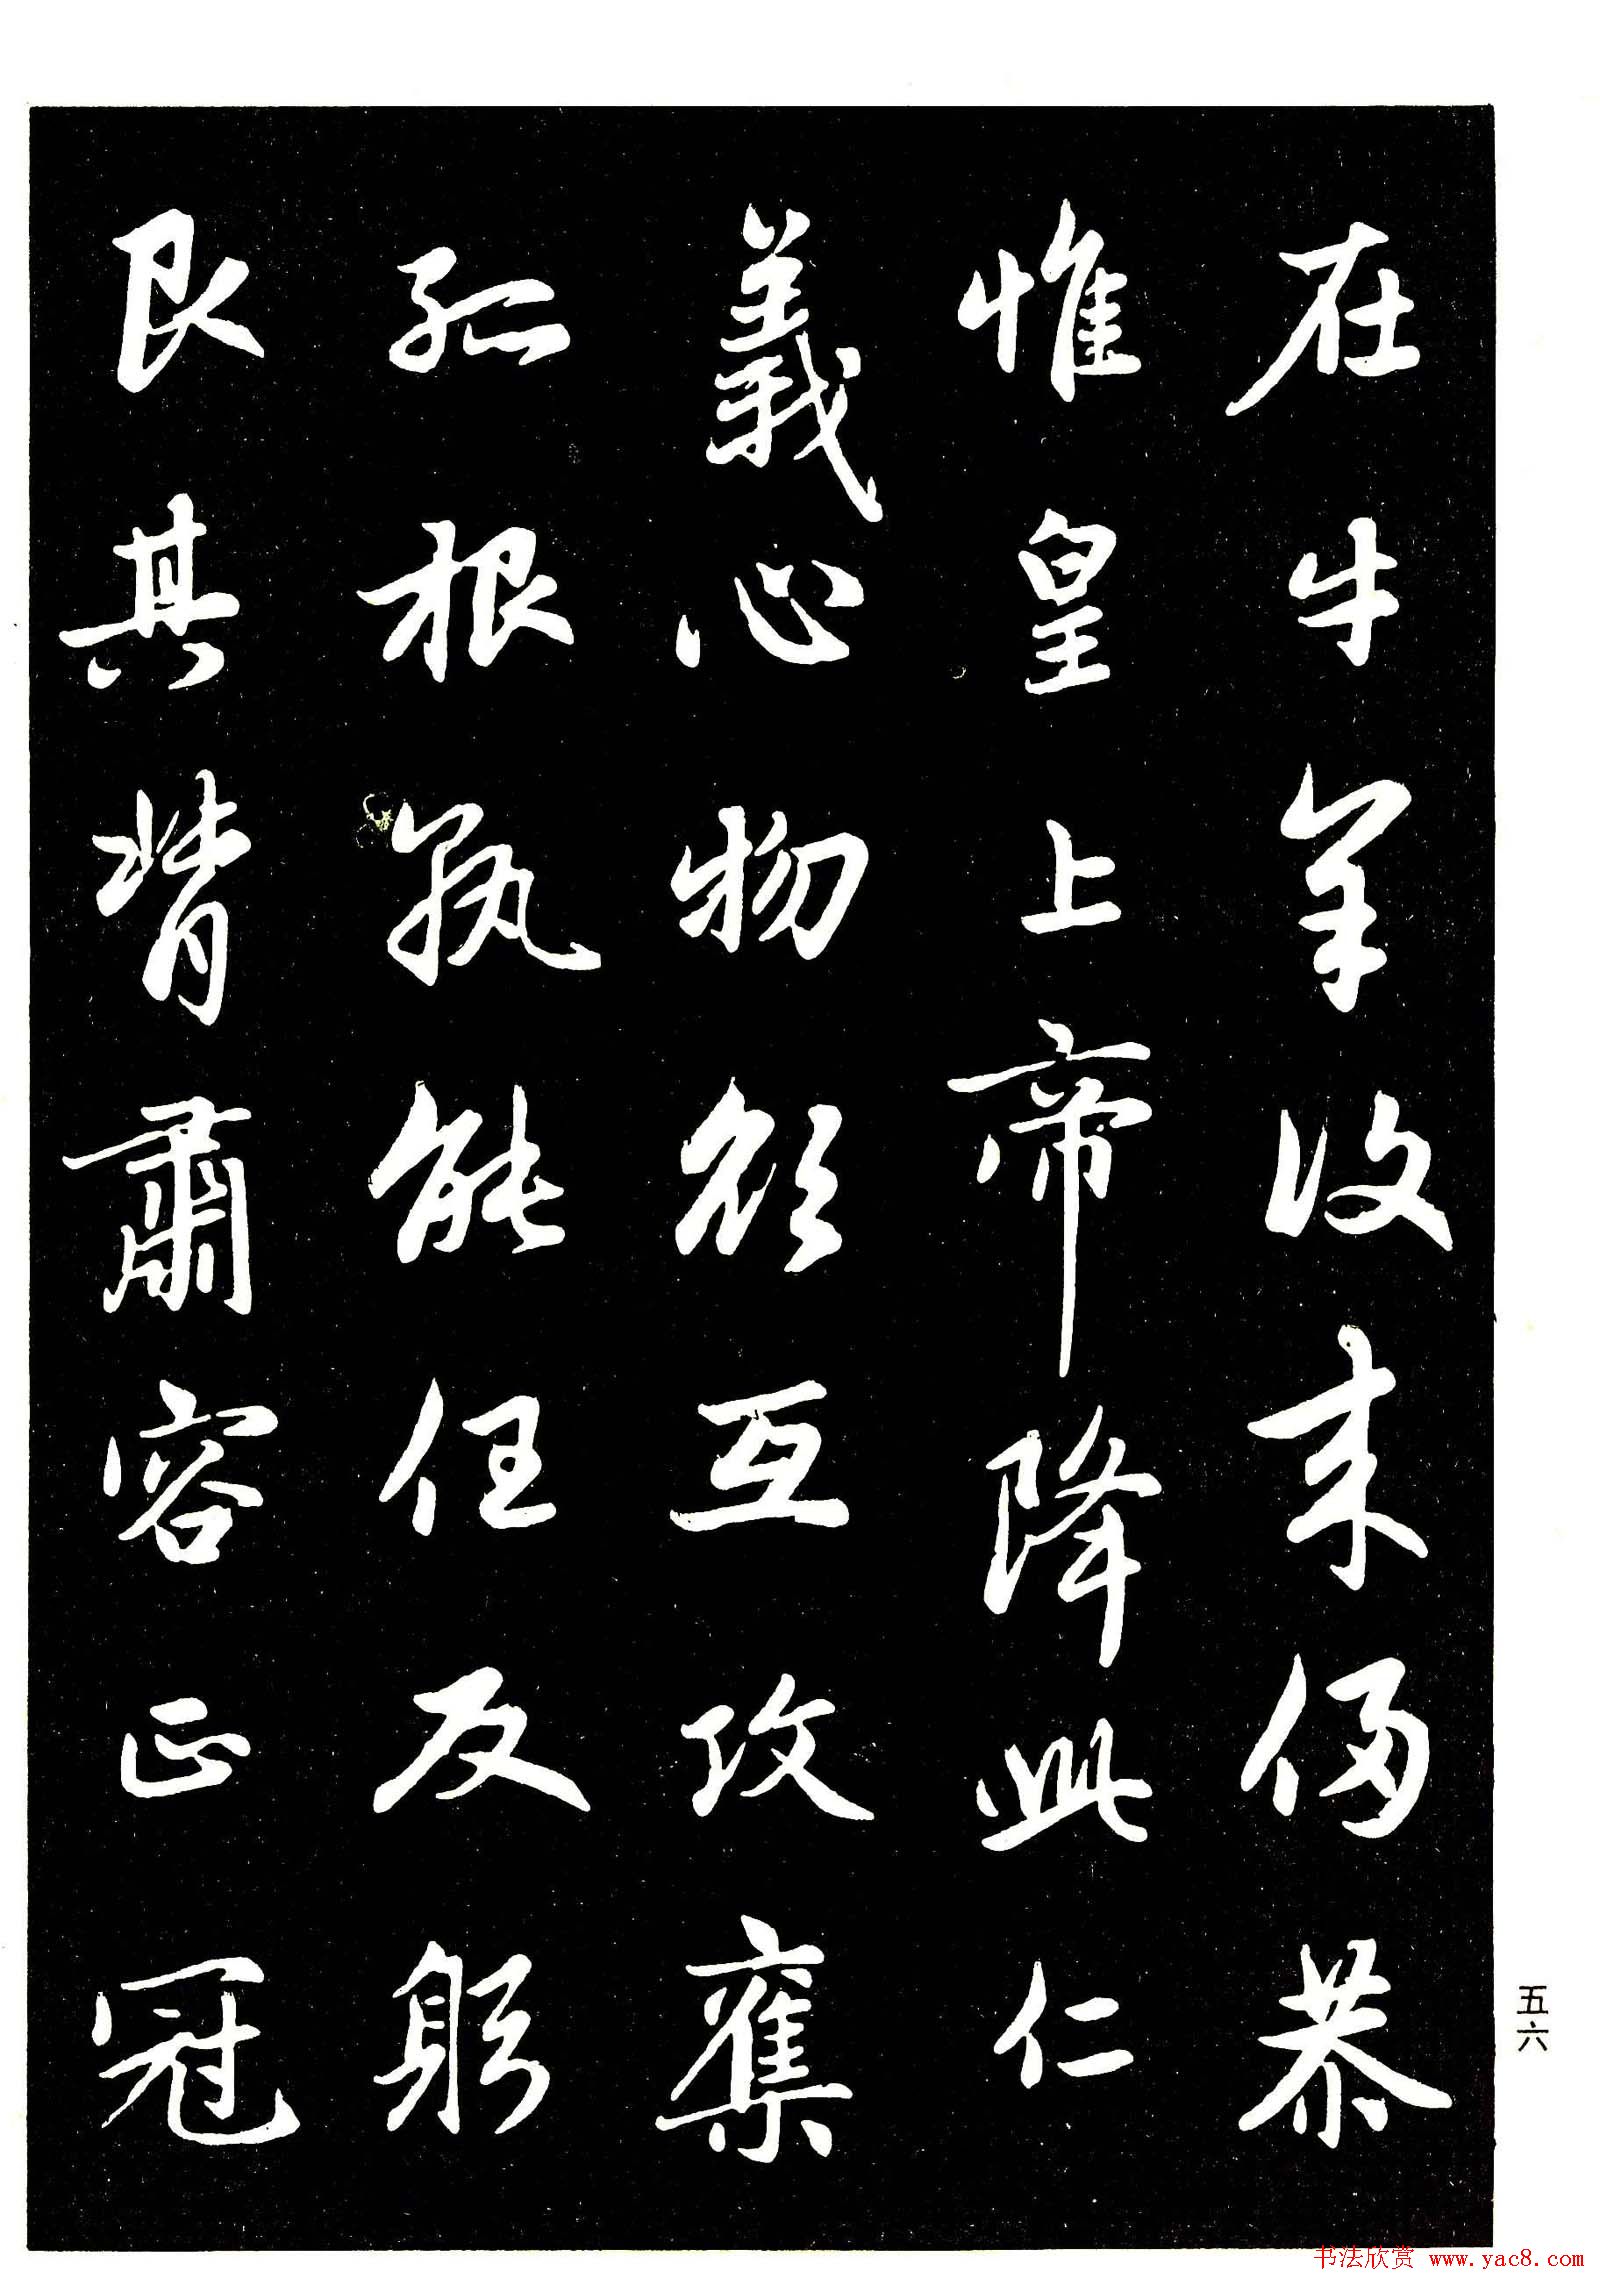 在牛羊改来侈恭
惟皇上帝降此仁
義心物欲互攻奪
孤根孰能任反躬
艮其背肅容正冠
五六
书法欣赏 www.yac8.com